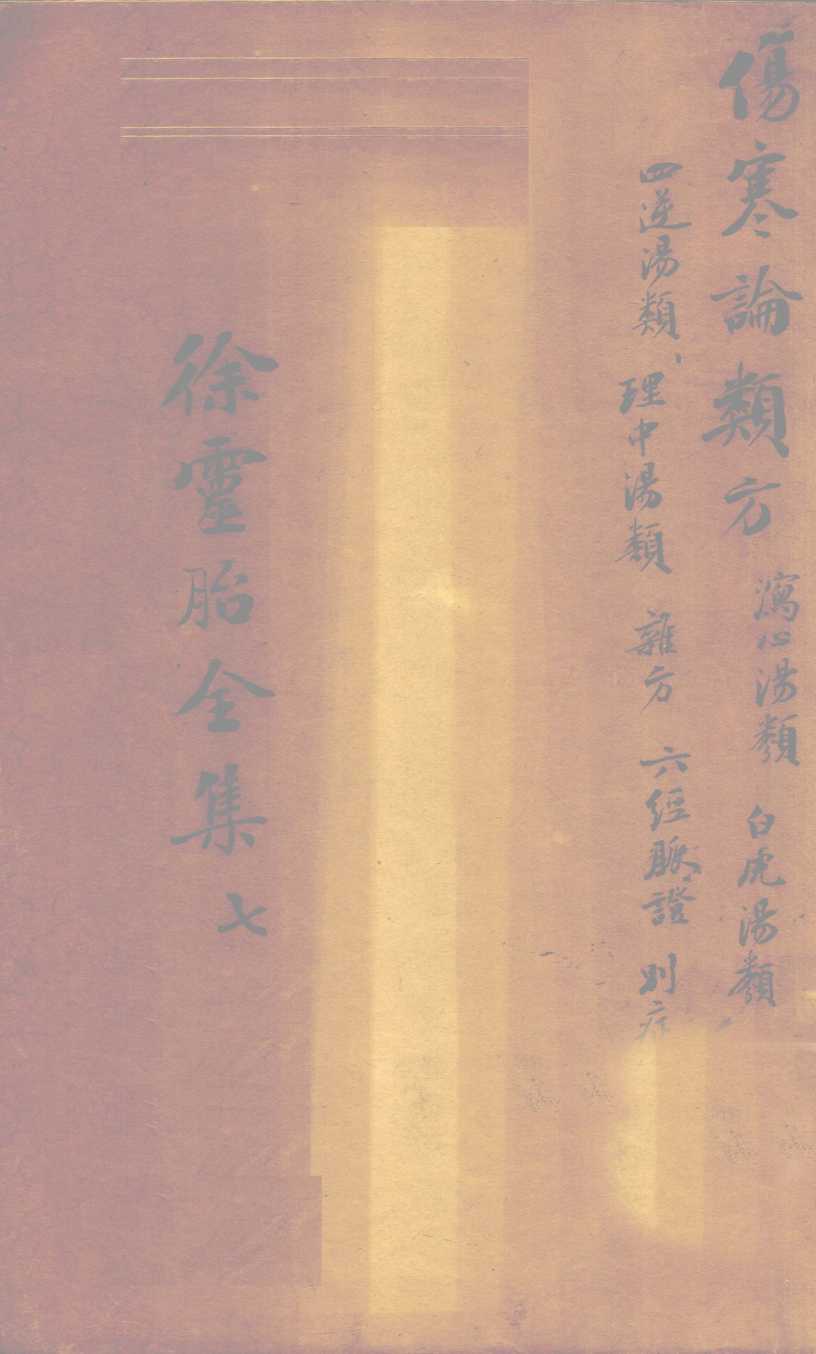 傷寒論類方 瀉心湯類 白虎湯類
四逆湯類、理中湯類 雜方 六經脈證 別症
徐靈胎全集 七